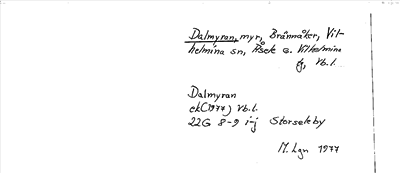 Dalmyran, myr, Brännåker, Vil-
helmina sn, Åsele o. Vilhelmina
tg, Vb.l.
Dalmyran
ek(1977) Vb.l.
22G 8-9 i-j Storseleby
M. Lgn 1977